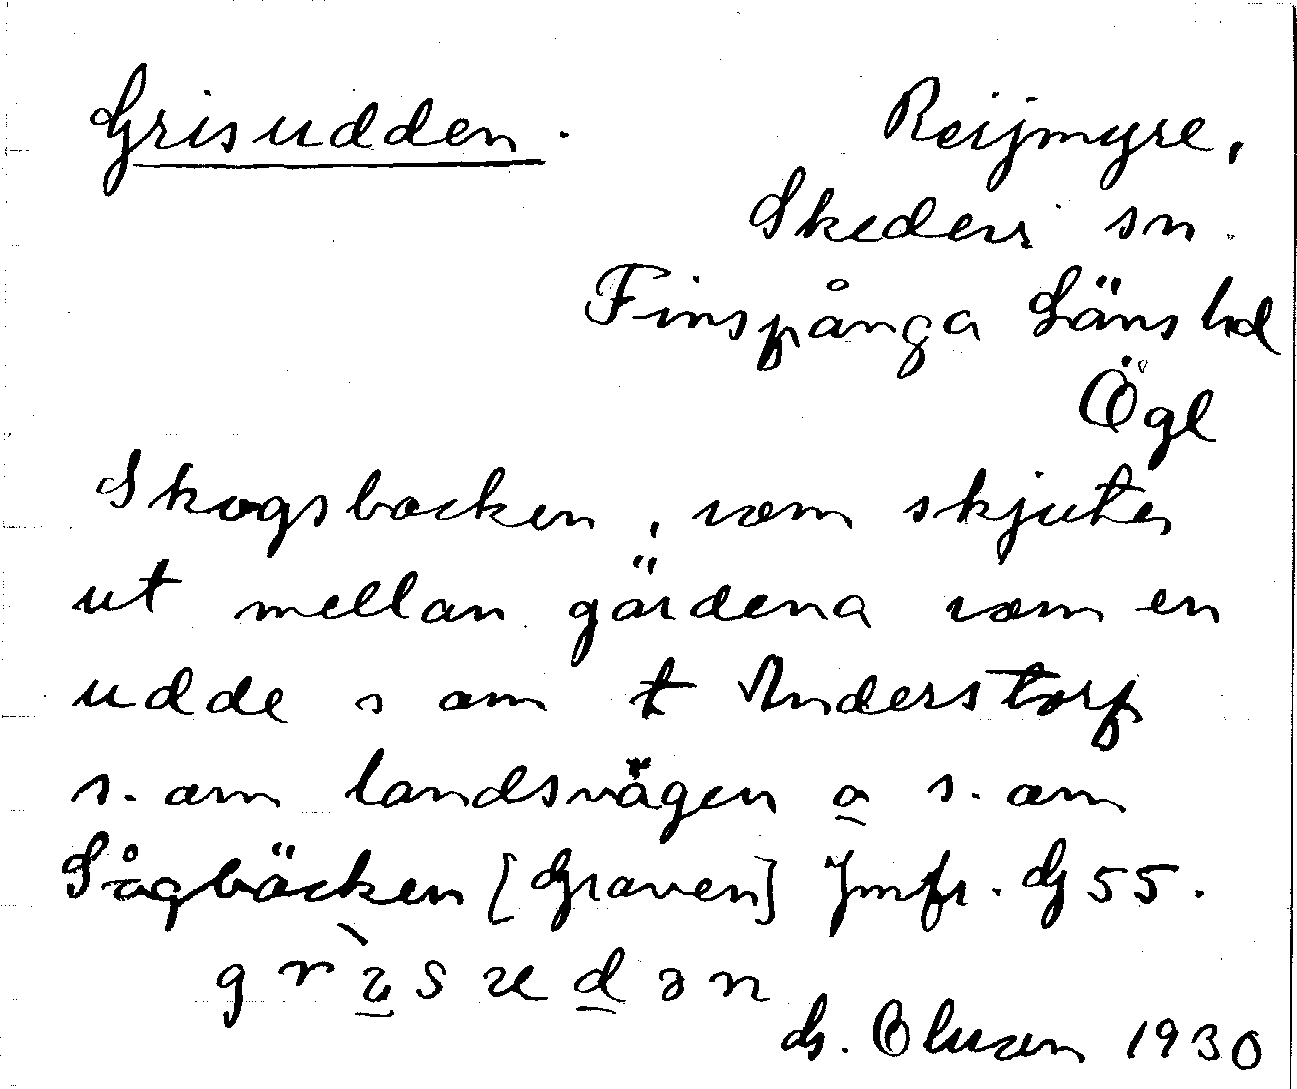 Grisudden.
Reijmyre,
Skedevi sn.
Finspånga Läns hd
Ögl
Skogsbacken, som skjuter
ut mellan gärdena som en
udde s om t Anderstorp
s. om landsvägen o s. om
Sågbäcken [Graven] Jmfr. G 55.
grìsudən
G. Olusen 1930